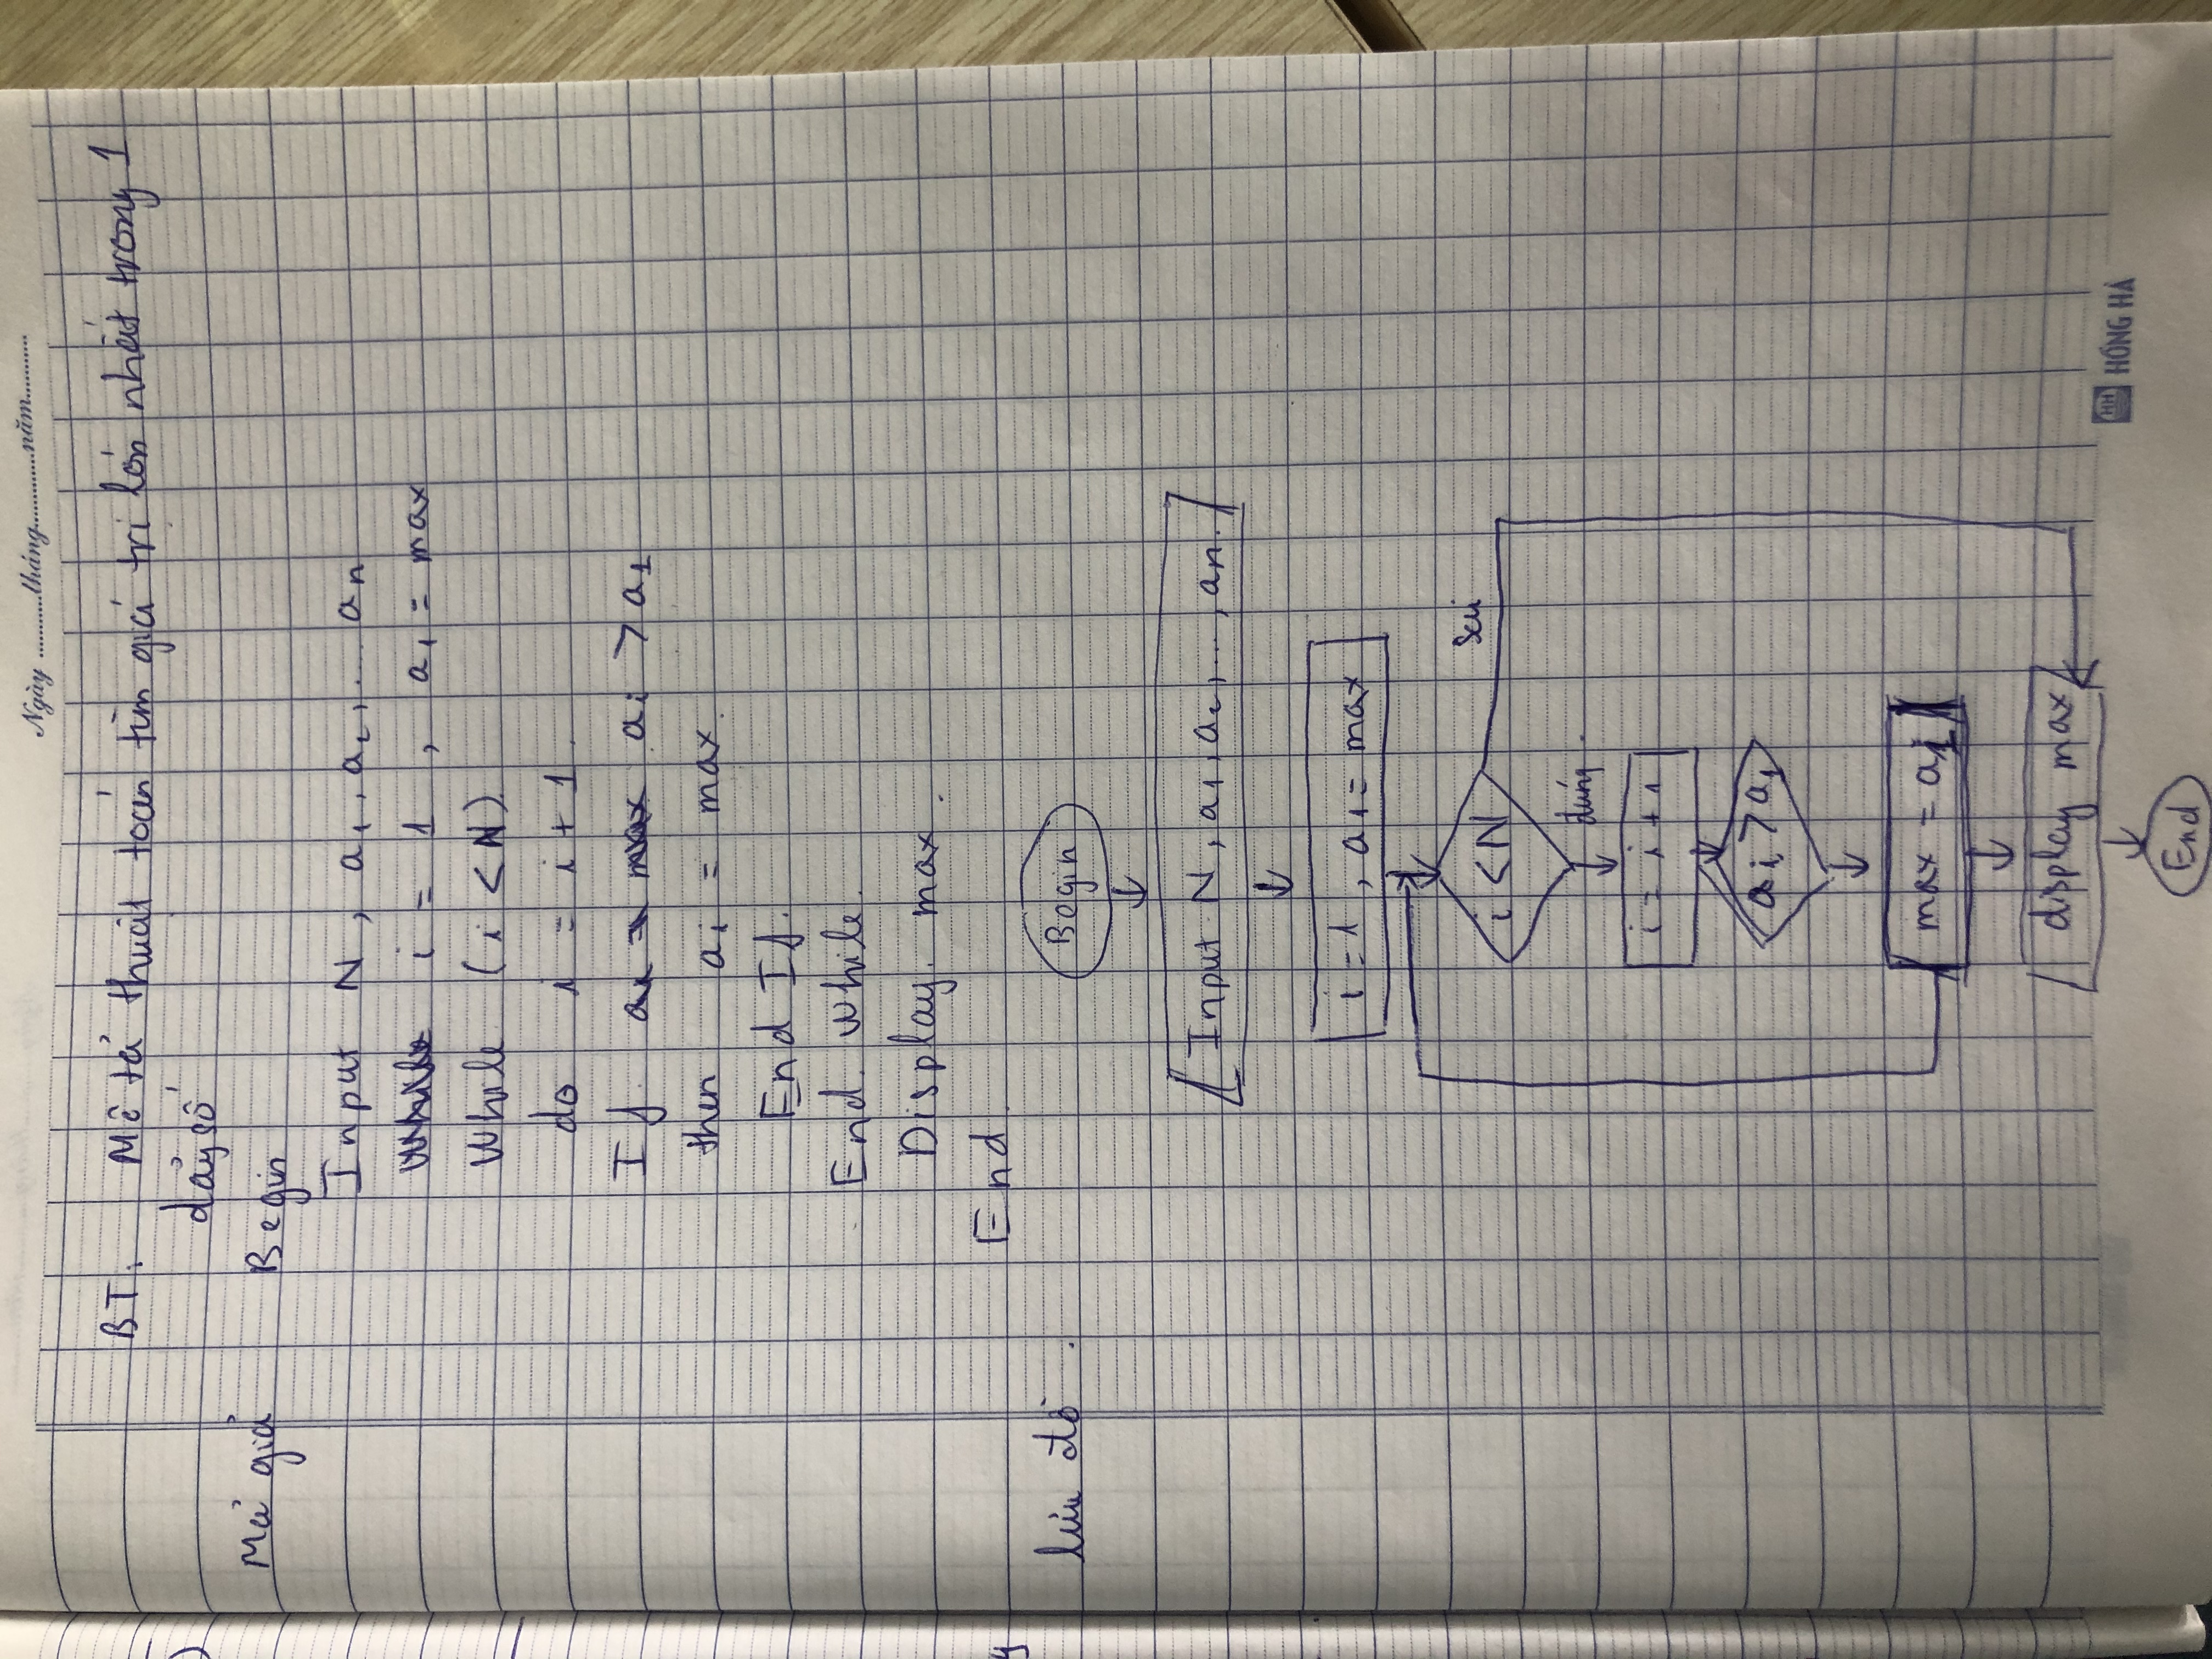 Ngày ............tháng.............năm...........
BT: Mô tả thuật toán tìm giá trị lớn nhất trong 1
dảy số
Mả giả
Begin
Input N, a1, a2, ... an
i = 1, a1 = max
While (i < N)
do i = i + 1.
If ai > a1
then ai = max.
End If.
End. While.
Display. max.
End.
lưu đồ.
Begin
Input N, a1, a2, ..., an.
i = 1, a1 = max
i < N
Sai
đúng.
i = i + 1
ai > a1
max = ai
display max
End
HH HỒNG HÀ